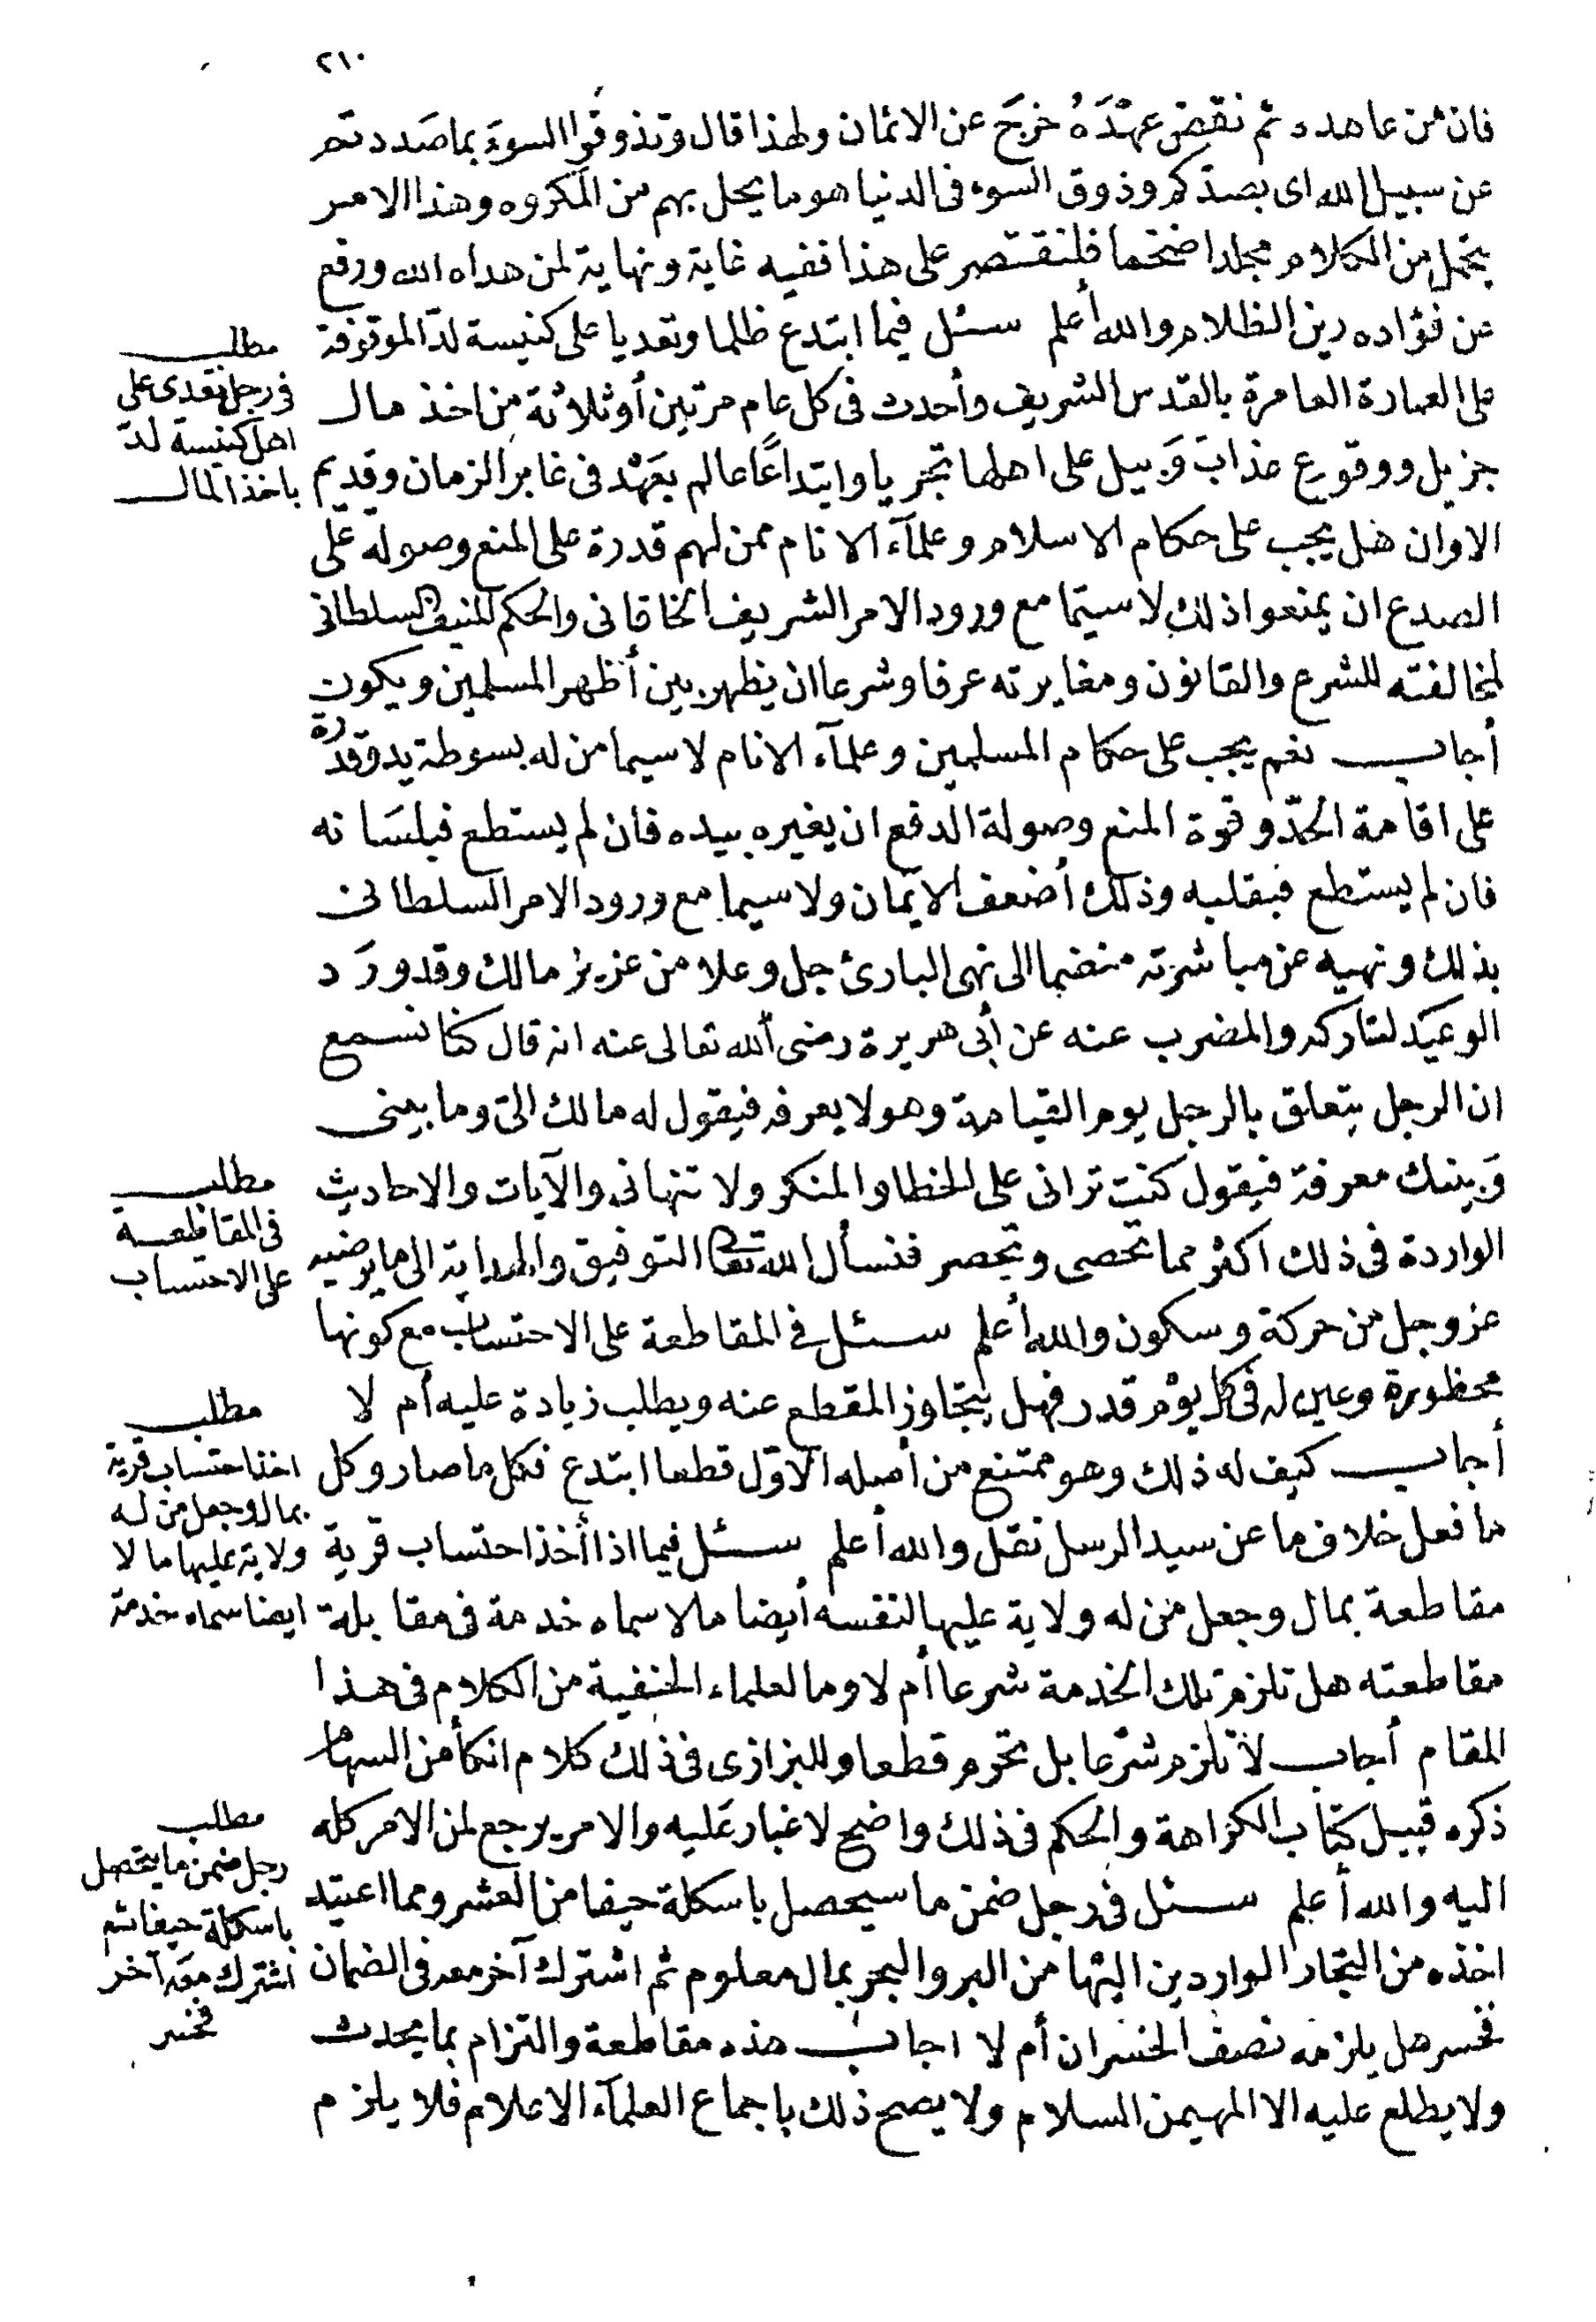 ٢١٠
فان من عاهده ثم نقض عهْدَهُ خرَجَ عن الائمان ولهذا قال وتذوقوا السوءَ بما صَددتم
عن سبيل الله اى بصدّكم وذوق السوء فى الدنيا هو ما يحل بهم من المكروه وهذا الامر
يحتمل من الكلام مجلدا ضخما فلنقتصر على هذا ففيه غاية ونهاية لمن هداه الله ورفع
عن فؤاده رين الظلام والله أعلم سئل فيما ابتدع ظلما وتعديا على كنيسة لدّ الموقوفة
على العمارة العامرة بالقدس الشريف وأحدث فى كل عام مرتين أو ثلاثة من اخذ مال
جزيل ووقوع عذاب وَبيل على اهلها تجريا وابتداعًا عالم يعَهْد فى غابر الزمان وقديم
الاوان هل يجب على حكام الاسلام وعلمآء الانام ممن لهم قدرة على المنع وصولة على
الصدع ان يمنعوا ذلك لا سيّما مع ورود الامر الشريف الخاقانى والحكم المنيف السلطانى
لمخالفته للشرع والقانون ومغايرته عرفا وشرعا ان يظهر بين أظهر المسلمين ويكون
أجاب نعم يجب على حكام المسلمين وعلمآء الانام لا سيما من له بسوطة يد وقدرة
على اقامة الحدّ وقوة المنع وصولة الدفع ان يغيره بيده فان لم يستطع فبلسَانه
فان لم يستطع فبقلبه وذلك أضعف الايمان ولا سيما مع ورود الامر السلطانى
بذلك ونهيه عن مباشرته منضما الى نهى البارئ جل وعلا من عزيز مالك وقد ورَد
الوعيد لتاركه والمضرب عنه عن أبى هريرة رضى الله تعالى عنه انه قال كنا نسمع
ان الرجل يتعلق بالرجل يوم القيامة وهو لا يعرفه فيقول له مالك الىّ وما بينى
وَبينك معرفة فيقول كنت ترانى على الخطا والمنكر ولا تنهانى والآيات والاحاديث
الواردة فى ذلك اكثر مما تحصى وتحصر فنسأل الله تعالى التوفيق والهداية الى ما يرضيه
عز وجل من حركة وسكون والله أعلم سئل فى المقاطعة على الاحتساب مع كونها
محظورة وعين له فى كل يوْم قدر فهل يتجاوز المقطع عنه ويطلب زيادة عليه أم لا
أجاب كيف له ذلك وهو ممتنع من أصله الاوّل قطعا ابتدع فكل ما صار وكل
ما فعل خلاف ما عن سيد الرسل نقل والله أعلم سئل فيما اذا أخذ احتساب قرية
مقاطعة بمال وجعل من له ولاية عليها لنفسه أيضا مالا سماه خدمة فى مقابلة
مقاطعته هل تلزم تلك الخدمة شرعا أم لا وما لعلماء الحنفية من الكلام فى هذا
المقام أجاب لا تلزم شرْعا بل تحرم قطعا وللبزازى فى ذلك كلام انكأ من السهام
ذكره قبيل كتاب الكراهة والحكم فى ذلك واضح لا غبار عَليه والامر يرجع لمن الامر كله
اليه والله أعلم سئل فى رجل ضمن ما سيحصل باسكلة حيفا من العشر ومما اعتيد
اخذه من التجار الواردين اليْها من البر والبحر بمال معلوم ثم اشترك آخر معه فى الضمان
فخسر هل يلزمه نصف الخسران أم لا اجاب هذه مقاطعة والتزام بما يحدث
ولا يطلع عليه الا المهيمن السلام ولا يصح ذلك باجماع العلمآء الاعلام فلا يلزم
مطلب
فى رجل تعدى على
اهل كنيسة لدّ
باخذ المال
مطلب
فى المقاطعة
على الاحتساب
مطلب
اخذ احتساب قرية
بمال وجعل من له
ولاية عليها مالا
ايضا سماه خدمة
مطلب
رجل ضمن ما يتحصل
باسكلة حيفا ثم
اشترك معَه آخر
فخسر